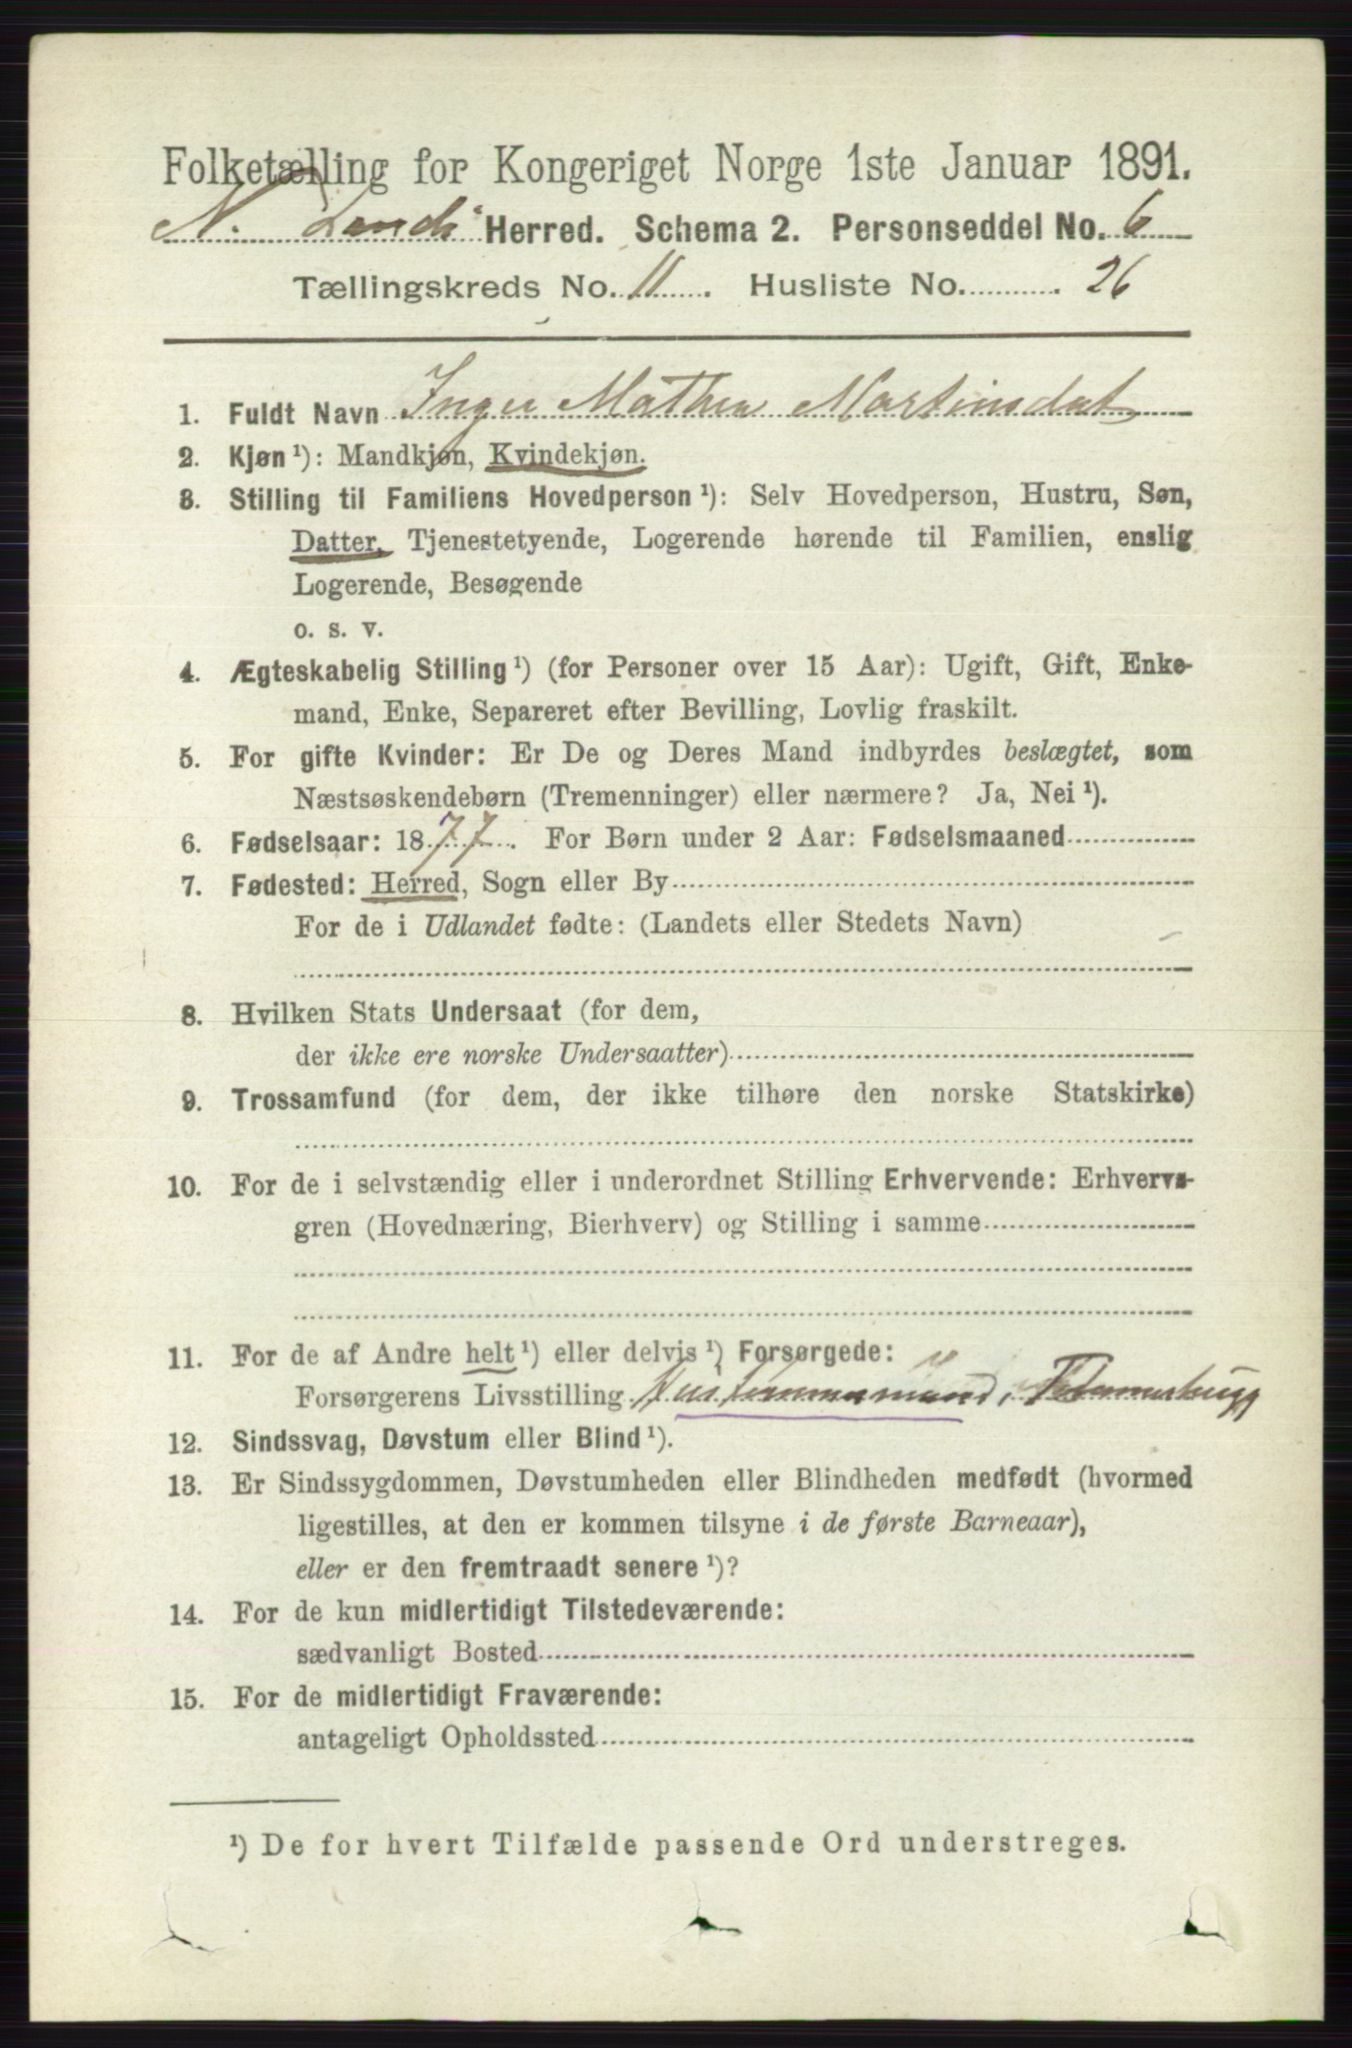 Folketælling for Kongeriget Norge 1ste Januar 1891.
N. Lands Herred. Schema 2. Personseddel No. 6
Tællingskreds No. 11. Husliste No. 26
1. Fuldt Navn Inger Mathea Martinsdat
2. Kjøn ¹): Mandkjøn, Kvindekjøn.
3. Stilling til Familiens Hovedperson ¹): Selv Hovedperson, Hustru, Søn,
Datter, Tjenestetyende, Logerende hørende til Familien, enslig
Logerende, Besøgende
o. s. v.
4. Ægteskabelig Stilling ¹) (for Personer over 15 Aar): Ugift, Gift, Enke-
mand, Enke, Separeret efter Bevilling, Lovlig fraskilt.
5. For gifte Kvinder: Er De og Deres Mand indbyrdes beslægtet, som
Næstsøskendebørn (Tremenninger) eller nærmere? Ja, Nei ¹).
6. Fødselsaar: 1877. For Børn under 2 Aar: Fødselsmaaned
7. Fødested: Herred, Sogn eller By
For de i Udlandet fødte: (Landets eller Stedets Navn)
8. Hvilken Stats Undersaat (for dem,
der ikke ere norske Undersaatter)
9. Trossamfund (for dem, der ikke tilhøre den norske Statskirke)
10. For de i selvstændig eller i underordnet Stilling Erhvervende: Erhvervs-
gren (Hovednæring, Bierhverv) og Stilling i samme
11. For de af Andre helt ¹) eller delvis ¹) Forsørgede:
Forsørgerens Livsstilling Husmand,
12. Sindssvag, Døvstum eller Blind ¹).
13. Er Sindssygdommen, Døvstumheden eller Blindheden medfødt (hvormed
ligestilles, at den er kommen tilsyne i de første Barneaar),
eller er den fremtraadt senere ¹)?
14. For de kun midlertidigt Tilstedeværende:
sædvanligt Bosted
15. For de midlertidigt Fraværende:
antageligt Opholdssted
¹) De for hvert Tilfælde passende Ord understreges.